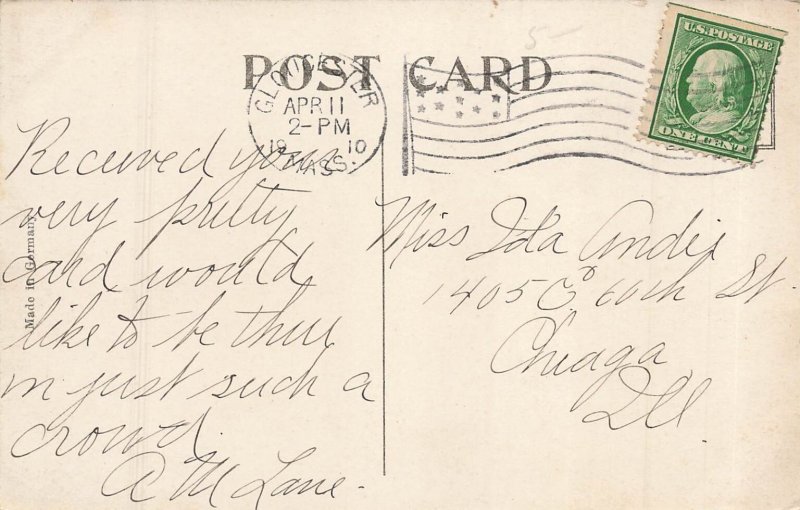 POST CARD
GLOUCESTER
APR 11
2-PM
1910
MASS.
U.S. POSTAGE
ONE CENT
Made in Germany
Received your
very pretty
card would
like to be thir
in just such a
crowd.
A M Lane.
Miss Ida
1405 60th St.
Chicaga
Ill.